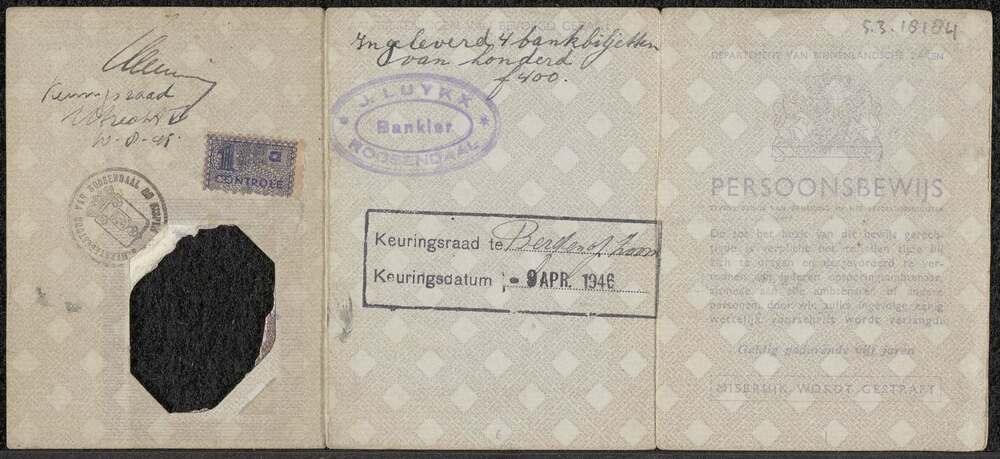 Keuringsraad
Utrecht
1 a
CONTROLE
VAN ROOSENDAAL EN NISPEN
AANTEEKENINGEN VAN BEVOEGD GEZAG
Ingeleverd 4 bankbiljetten
van honderd
f 400.
J. LUYKX
Bankier
ROOSENDAAL
Keuringsraad te Bergen op Zoom
Keuringsdatum - 9 APR. 1946
6
53.18184
DEPARTEMENT VAN BINNENLANDSCHE ZAKEN
PERSOONSBEWIJS
De tot het bezit van dit bewijs gerech-
tigde is verplicht het ten allen tijde bij
zich te dragen en desgevorderd te ver-
toonen aan iederen opsporingsambte-
personen, door wie zulks ingevolge eenig
wettelijk voorschrift wordt verlangd.
Geldig gedurende vijf jaren
MISBRUIK WORDT GESTRAFT
1